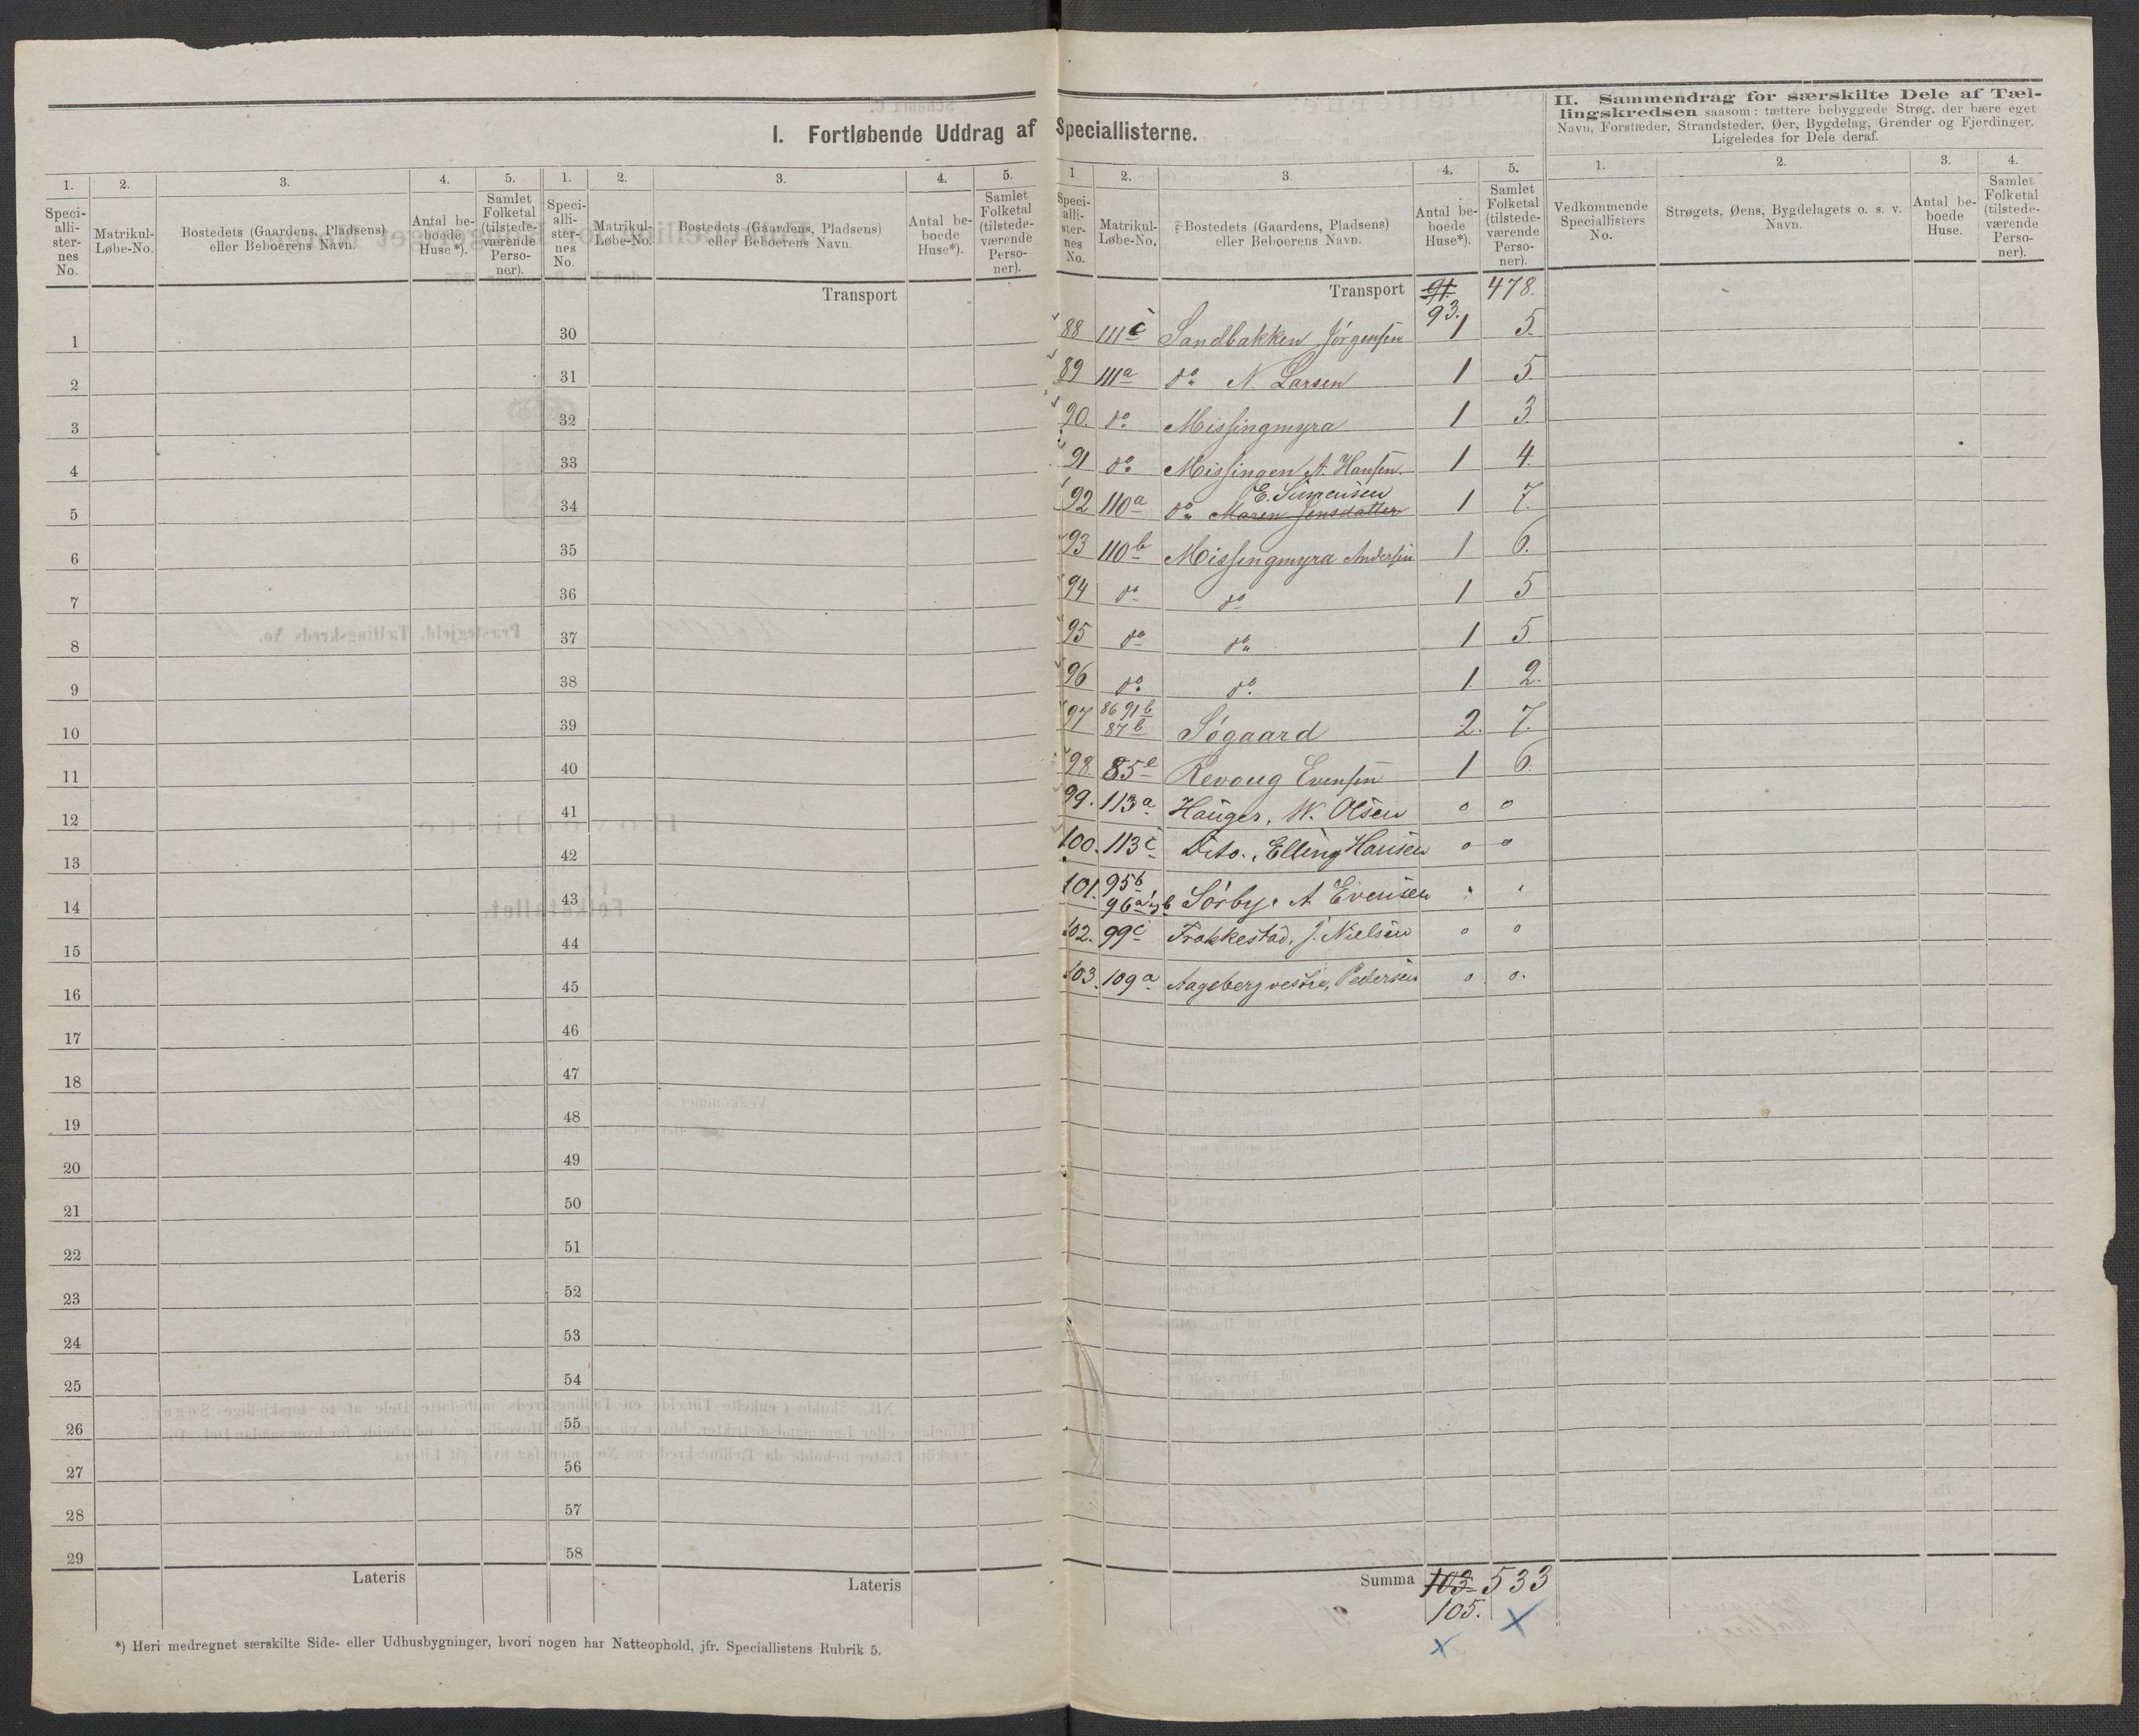 I. Fortløbende Uddrag af Speciallisterne.
1. 2. 3. 4. 5. 1. 2. 3. 4. 5.
Speci-alli-ster-nes No. Matrikul-Løbe-No. Bostedets (Gaardens, Pladsens) eller Beboerens Navn. Antal be-boede Huse*). Samlet Folketal (tilstede-værende Perso-ner). Speci-alli-ster-nes No. Matrikul-Løbe-No. Bostedets (Gaardens, Pladsens) eller Beboerens Navn. Antal be-boede Huse*). Samlet Folketal (tilstede-værende Perso-ner).
Transport
1 30
2 31
3 32
4 33
5 34
6 35
7 36
8 37
9 38
10 39
11 40
12 41
13 42
14 43
15 44
16 45
17 46
18 47
19 48
20 49
21 50
22 51
23 52
24 53
25 54
26 55
27 56
28 57
29 58
Lateris Lateris
*) Heri medregnet særskilte Side- eller Udhusbygninger, hvori nogen har Natteophold, jfr. Speciallistens Rubrik 5.
1 2. 3. 4. 5.
Speci-alli-ster-nes No. Matrikul-Løbe-No. Bostedets (Gaardens, Pladsens) eller Beboerens Navn. Antal be-boede Huse*). Samlet Folketal (tilstede-værende Perso-ner).
Transport 91. 478.
93.
88 111c Sandbakken Jørgensen 1 5.
89 111a do N. Larsen 1 5
90. do Missingmyra 1 3.
91 do Missingen A. Hansen. 1 4.
E. Simensen
92 110a do Maren Jensdatter 1 7.
93 110b Missingmyra Andersen 1 6.
94 do do 1 5
95 do do 1 5.
96 do do 1. 2.
97 86 91b 87b Søgaard 2. 7.
98. 85e Revoug Evensen 1 6.
99. 113a Hauger, W. Olsen 0 0
100. 113c Dito., Elling Hansen 0 0
101. 95b 96a & b Sørby, A Evensen " "
102. 99c Frakkestad, J. Nielsen 0 0
103. 109a Aageberg vestre, Pedersen 0 0.
Summa 103 533
105.
II. Sammendrag for særskilte Dele af Tæl-
lingskredsen saasom: tættere bebyggede Strøg, der bære eget
Navn, Forstæder, Strandsteder, Øer, Bygdelag, Grender og Fjerdinger.
Ligeledes for Dele deraf.
1. 2. 3. 4.
Vedkommende Speciallisters No. Strøgets, Øens, Bygdelagets o. s. v. Navn. Antal be-boede Huse. Samlet Folketal (tilstede-værende Perso-ner).